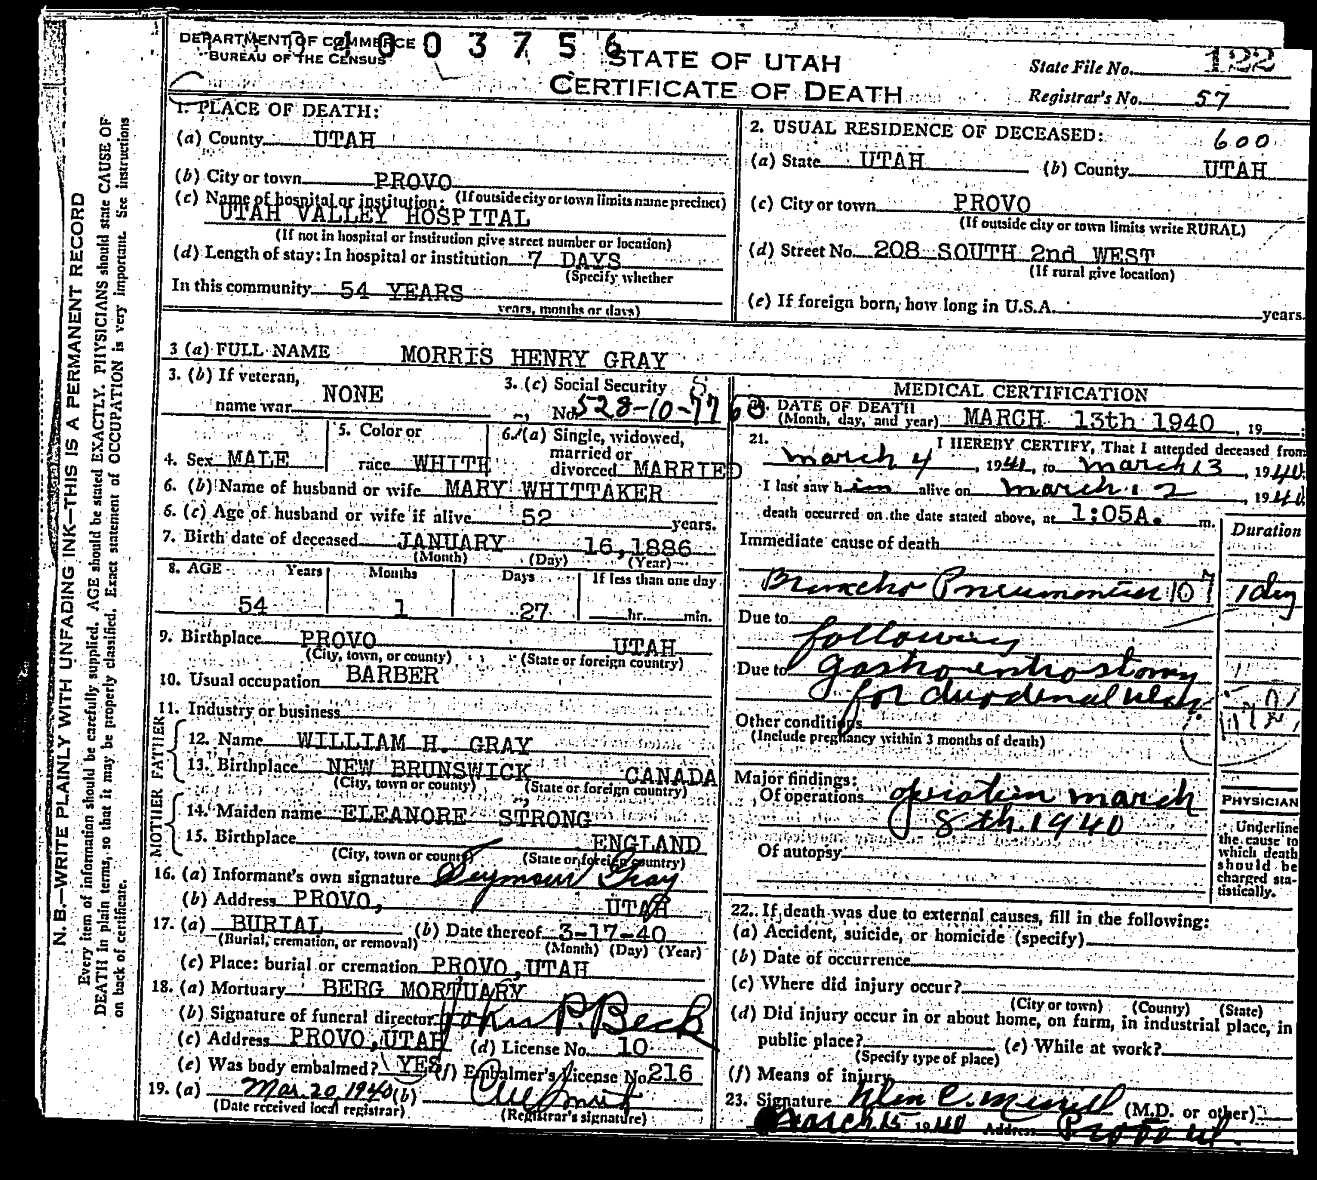 DEPARTMENT OF COMMERCE
BUREAU OF THE CENSUS
4 0 0 3 7 5 6
STATE OF UTAH
CERTIFICATE OF DEATH
State File No. 122
Registrar's No. 57
N. B.—WRITE PLAINLY WITH UNFADING INK—THIS IS A PERMANENT RECORD
Every item of information should be carefully supplied. AGE should be stated EXACTLY. PHYSICIANS should state CAUSE OF
DEATH in plain terms, so that it may be properly classified. Exact statement of OCCUPATION is very important. See instructions
on back of certificate.
1. PLACE OF DEATH:
(a) County UTAH
(b) City or town PROVO
(If outside city or town limits name precinct)
(c) Name of hospital or institution:
UTAH VALLEY HOSPITAL
(If not in hospital or institution give street number or location)
(d) Length of stay: In hospital or institution 7 DAYS
(Specify whether
In this community 54 YEARS
years, months or days)
2. USUAL RESIDENCE OF DECEASED: 600
(a) State UTAH (b) County UTAH
(c) City or town PROVO
(If outside city or town limits write RURAL)
(d) Street No. 208 SOUTH 2nd WEST
(If rural give location)
(e) If foreign born, how long in U.S.A. years.
3 (a) FULL NAME MORRIS HENRY GRAY
3. (b) If veteran,
name war NONE
3. (c) Social Security
No. 528-10-17
4. Sex MALE
5. Color or
race WHITE
6. (a) Single, widowed,
married or
divorced MARRIED
6. (b) Name of husband or wife MARY WHITTAKER
6. (c) Age of husband or wife if alive 52 years.
7. Birth date of deceased JANUARY 16,1886
(Month) (Day) (Year)
8. AGE Years Months Days If less than one day
54 1 27 hr. min.
9. Birthplace PROVO UTAH
(City, town, or county) (State or foreign country)
10. Usual occupation BARBER
11. Industry or business
FATHER
12. Name WILLIAM H. GRAY
13. Birthplace NEW BRUNSWICK CANADA
(City, town or county) (State or foreign country)
MOTHER
14. Maiden name ELEANORE STRONG
15. Birthplace ENGLAND
(City, town or county) (State or foreign country)
16. (a) Informant's own signature Seymour Gray
(b) Address PROVO, UTAH
17. (a) BURIAL (b) Date thereof 3-17-40
(Burial, cremation, or removal) (Month) (Day) (Year)
(c) Place: burial or cremation PROVO, UTAH
18. (a) Mortuary BERG MORTUARY
(b) Signature of funeral director John P. Beck
(c) Address PROVO, UTAH (d) License No. 10
(e) Was body embalmed? YES (f) Embalmer's License No. 216
19. (a) Mar. 20, 1940 (b)
(Date received local registrar) (Registrar's signature)
MEDICAL CERTIFICATION
DATE OF DEATH
(Month, day, and year) MARCH 13th 1940, 19
21. I HEREBY CERTIFY, That I attended deceased from
March 4, 1940, to March 13, 1940
I last saw him alive on March 12, 1940
death occurred on the date stated above, at 1:05A. m.
Duration
Immediate cause of death
Broncho Pneumonia 107 1 day
Due to following
Due to gastro entrostomy
for duodenal ulcer.
Other conditions
(Include pregnancy within 3 months of death)
Major findings:
Of operations operation March
8th. 1940
Of autopsy
PHYSICIAN
Underline
the cause to
which death
should be
charged sta-
tistically.
22. If death was due to external causes, fill in the following:
(a) Accident, suicide, or homicide (specify)
(b) Date of occurrence
(c) Where did injury occur?
(City or town) (County) (State)
(d) Did injury occur in or about home, on farm, in industrial place, in
public place? (e) While at work?
(Specify type of place)
(f) Means of injury
23. Signature (M.D. or other)
March 15 1940 Address Provo Ut.